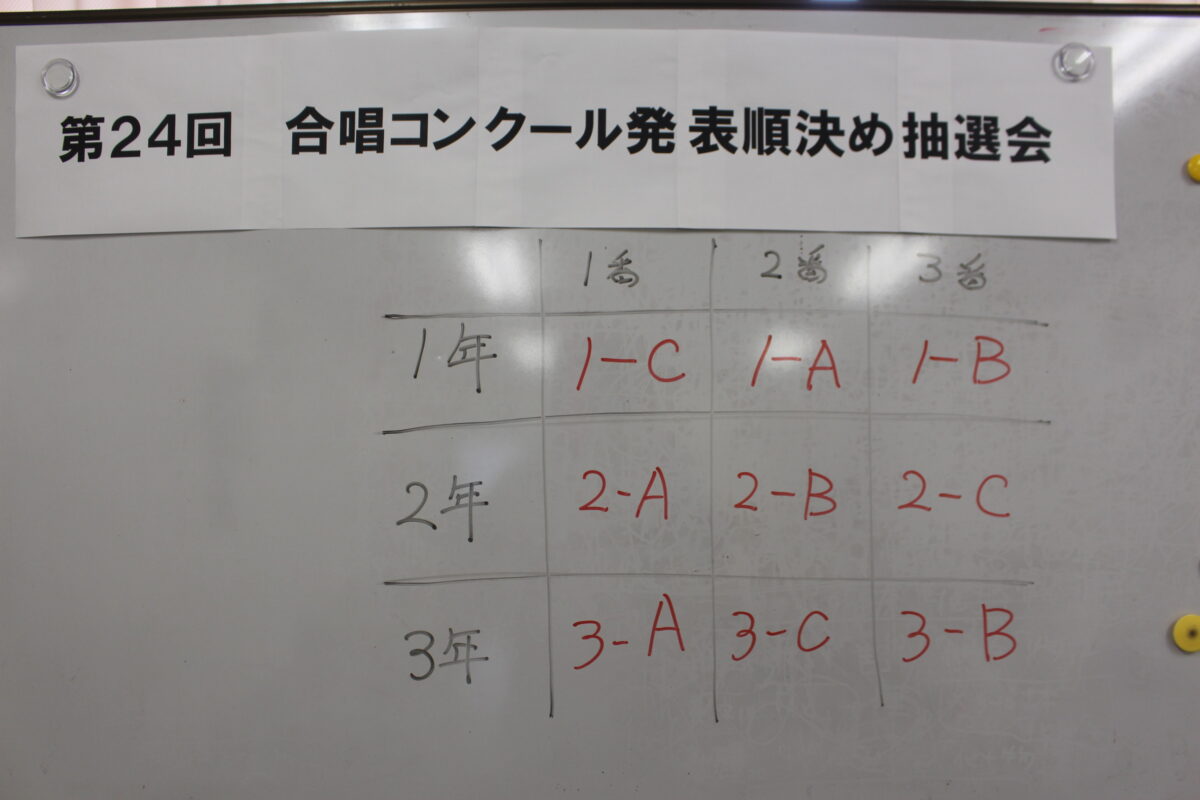 第24回　合唱コンクール発表順決め抽選会
1番 2番 3番
1年 1-C 1-A 1-B
2年 2-A 2-B 2-C
3年 3-A 3-C 3-B